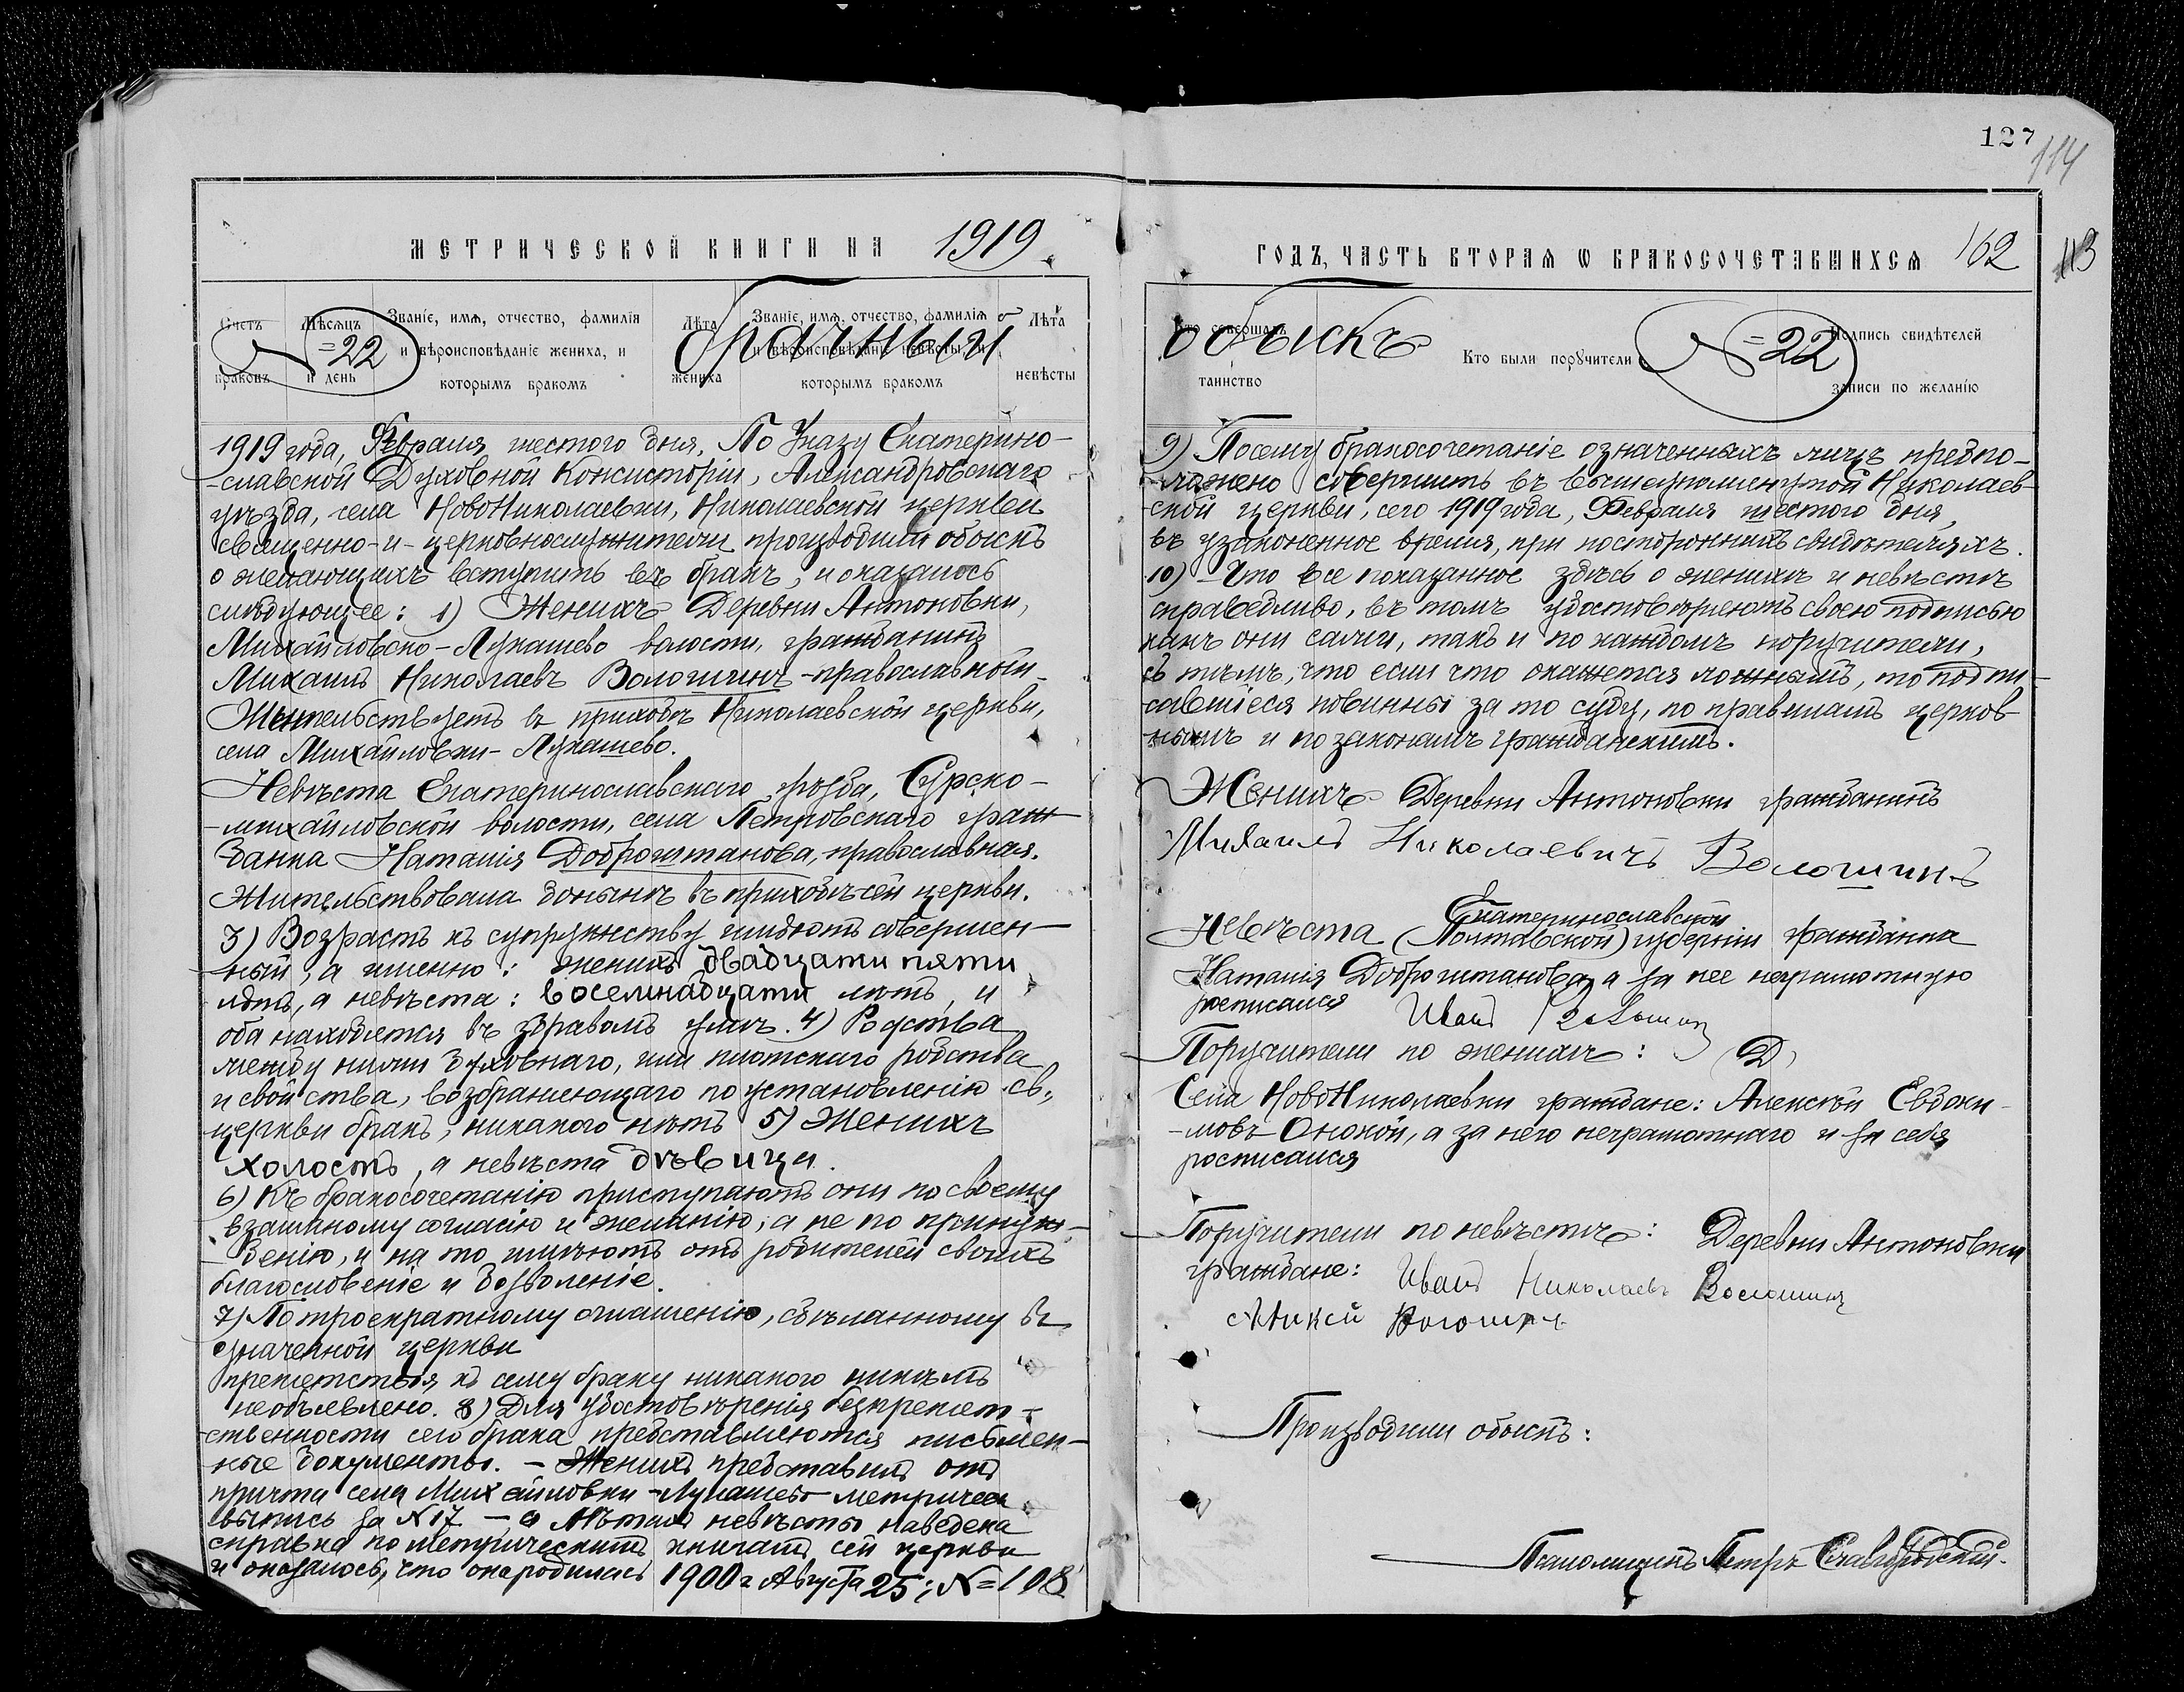 127
114
МЕТРИЧЕСКОЙ КНИГИ НА 1919
ГОДЪ, ЧАСТЬ ВТОРАЯ Ѡ БРАКОСОЧЕТАВШИХСЯ 162
113
Счетъ браковъ
Мѣсяцъ и день
Званіе, имя, отчество, фамилія и вѣроисповѣданіе жениха, и которымъ бракомъ
Лѣта жениха
Званіе, имя, отчество, фамилія и вѣроисповѣданіе невѣсты, и которымъ бракомъ
Лѣта невѣсты
Кто совершалъ таинство
Кто были поручители
Подпись свидѣтелей записи по желанію
№ 22 Брачный
обыскъ № 22
1919 года, Февраля шестого дня, По Указу Екатерино-
-славской Духовной Консисторіи, Александровскаго
уѣзда, села НовоНиколаевки, Николаевской церкви
священно-и-церковнослужители производили обыскъ
о желающихъ вступить въ бракъ, и оказалось
слѣдующее: 1) Женихъ Деревни Антоновки,
Михайловско-Лукашево волости, гражданинъ
Михаилъ Николаевъ Волошинъ-православный-
Жительствуетъ въ приходѣ Николаевской церкви,
села Михайловки-Лукашево.
Невѣста Екатеринославскаго уѣзда, Сурско-
-михайловской волости, села Петровскаго граж-
данка Наталія Доброштанова, православная.
Жительствовала донынѣ въ приходѣ сей церкви.
3) Возрастъ къ супружеству имѣютъ совершен-
ный, а именно: женихъ двадцати пяти
лѣтъ, а невѣста: восемнадцати лѣтъ, и
оба находятся въ здравомъ умѣ. 4) Родства
между ними духовнаго, или плотскаго родства
и свойства, возбраняющаго по установленію св.
церкви бракъ, никакого нѣтъ 5) Женихъ
холостъ, а невѣста дѣвица.
6) Къ бракосочетанію приступаютъ они по своему
взаимному согласію и желанію, а не по принуж-
-денію, и на то имѣютъ отъ родителей своихъ
благословеніе и дозволеніе.
7) По троекратному оглашенію, сдѣланному въ
означенной церкви
препятствія къ сему браку никакого никѣмъ
необъявлено. 8) Для удостовѣренія безпрепят-
ственности сего брака представляются письмен-
ные документы. - Женихъ представилъ отъ
причта села Михайловки-Лукашево метрическ.
выпись за №17 - о лѣтахъ невѣсты наведена
справка по метрическимъ книгамъ сей церкви
и оказалось, что она родилась 1900 г Августа 25; № 108
9) Посему бракосочетаніе означенныхъ лицъ предпо-
-ложено совершить въ вышеупомянутой Николаев-
-ской церкви, сего 1919 года, Февраля шестого дня,
въ узаконенное время, при постороннихъ свидѣтеляхъ.
10) Что все показанное здѣсь о женихѣ и невѣстѣ
справедливо, въ томъ удостовѣряютъ своею подписью
какъ они сами, такъ и по каждомъ поручители,
съ тѣмъ, что если что окажется ложнымъ, то подпи-
савшіеся повинны за то суду, по правиламъ церков-
нымъ и по законамъ гражданскимъ.
Женихъ Деревни Антоновки гражданинъ
Михаилъ Николаевичъ Волошинъ
Екатеринославской
Невѣста (Полтавской) губерніи гражданка
Наталія Доброштанова, а за нее неграмотную
росписался Иванъ
Поручители по женихѣ:
Села НовоНиколаевки граждане: Алексѣй Евдоки-
-мовъ Онокой, а за него неграмотнаго и за себя
росписался
Поручители по невѣстѣ: Деревни Антоновки
граждане: Иванъ Николаевъ Волошинъ
Волошин
Производили обыскъ:
Псаломщикъ Петръ Славгородскій.